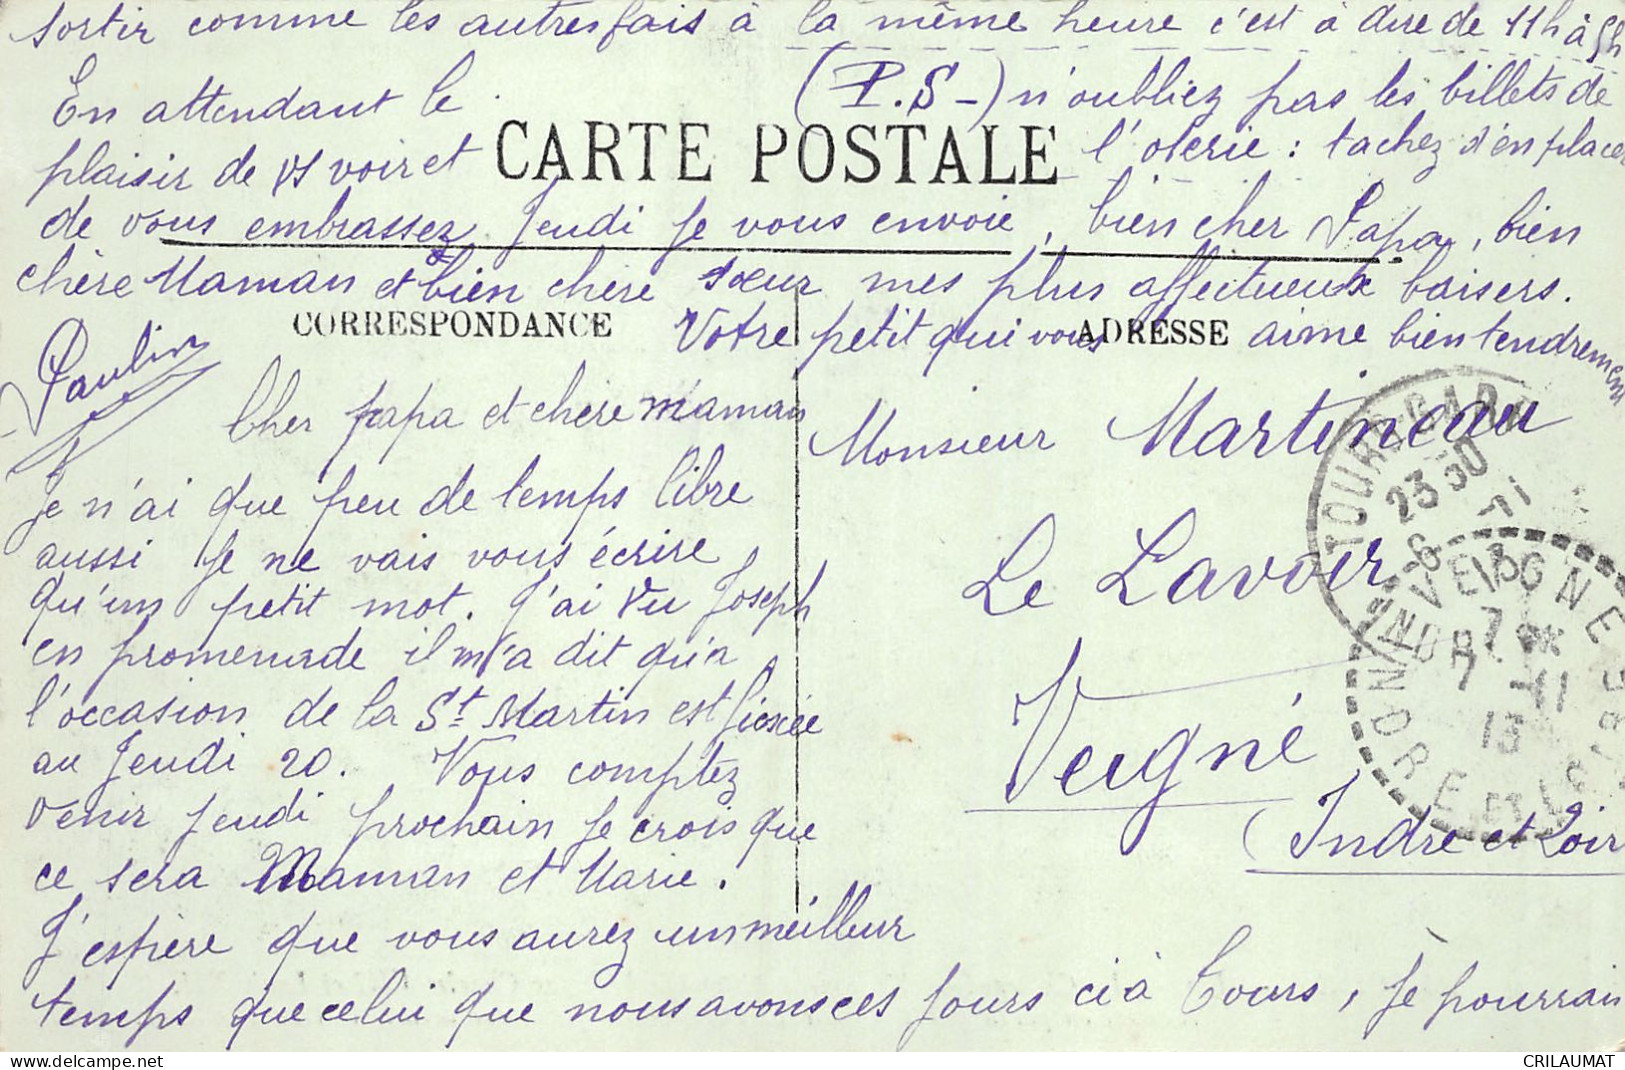 sortir comme les autres fois à la même heure c'est à dire de 11h à 5h
En attendant le
plaisir de vs voir et
(P.S-) n'oubliez pas les billets de
l'oterie : tachez d'en placer
CARTE POSTALE
de vous embrassez Jeudi je vous envoie, bien cher Papa, bien
chère Maman et bien chère sœur mes plus affectueux baisers.
CORRESPONDANCE
ADRESSE
Votre petit qui vous aime bien tendrement
Paulin
Cher papa et chère maman
Je n'ai que peu de temps libre
aussi je ne vais vous écrire
qu'un petit mot. J'ai vu Joseph
en promenade il m'a dit qu'a
l'occasion de la St Martin est fixée
au Jeudi 20. Vous comptez
venir jeudi prochain je crois que
ce sera Maman et Marie.
J'espère que vous aurez un meilleur
temps que celui que nous avons ces jours ci à Tours, je pourrai
Monsieur Martineau
Le Lavoir
Veigné
(Indre et Loire
TOURS GARE
23 30
6 -11
13
VEIGNE
INDRE ET LOIRE
7 -11
13
CRILAUMAT